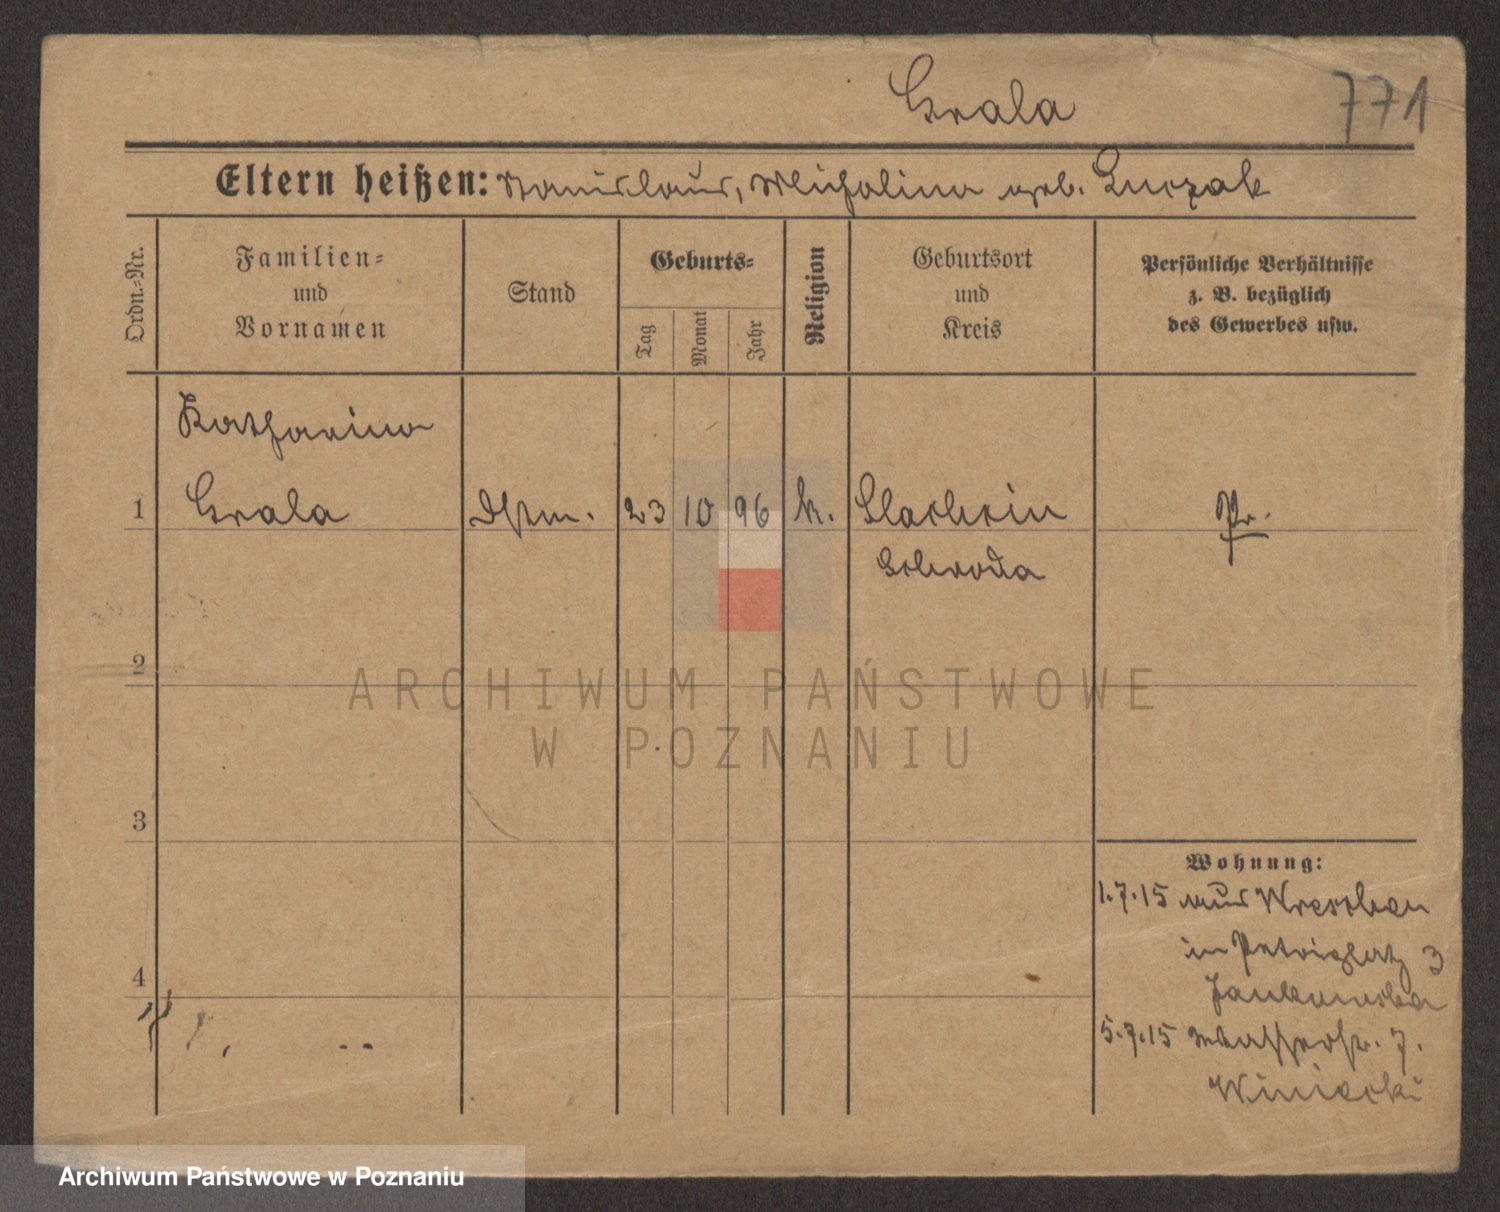 Grala
771
Eltern heißen: Stanislaus, Michalina geb. Luczak
Ordn.-Nr.
Familien-
und
Vornamen
Stand
Geburts-
Tag
Monat
Jahr
Religion
Geburtsort
und
Kreis
Persönliche Verhältnisse
z. B. bezüglich
des Gewerbes usw.
Katharina
1 Grala
23 10 96 k.
Pr.
Schroda
2
3
4
Wohnung:
1.7.15 aus Wreschen
in Petriplatz 3
Jankowska
5.7.15 Wasserstr. 7.
Winiecki
ARCHIWUM PAŃSTWOWE
W POZNANIU
Archiwum Państwowe w Poznaniu